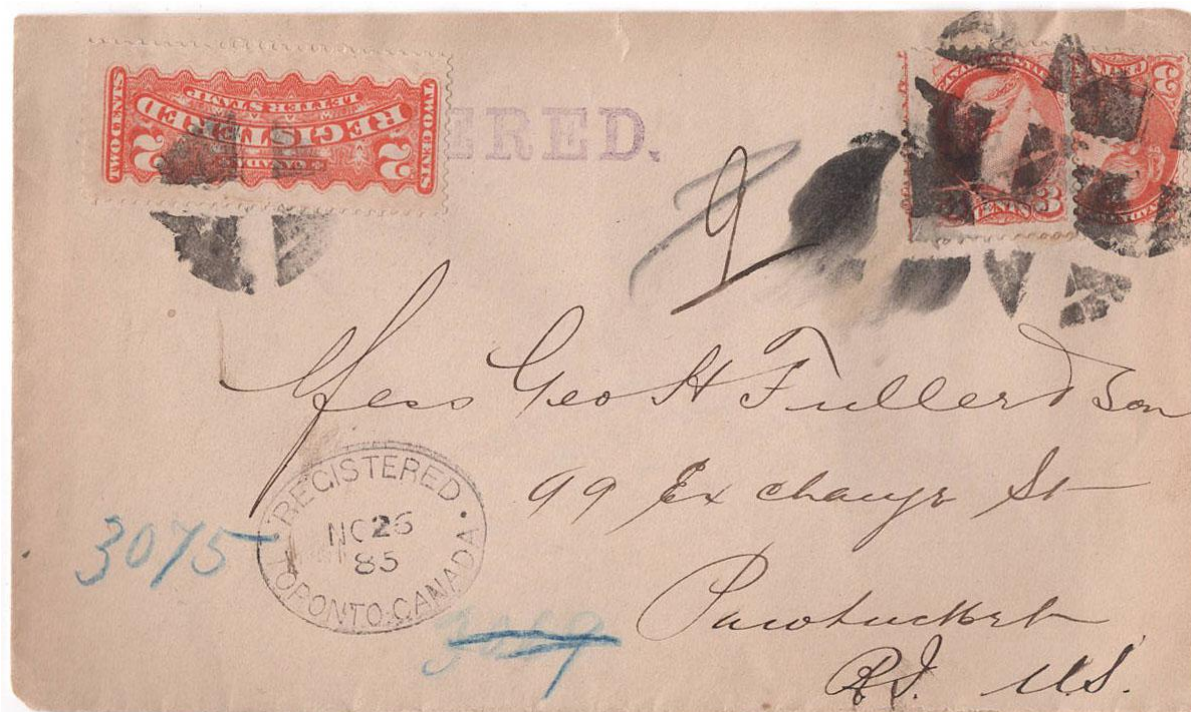 TWO CENTS REGISTERED LETTER STAMP CANADA TWO CENTS
2 2
ERED.
3 CENTS
3
9
Mess Geo H Fuller & Son
99 Exchange St
Pawtucket
R.I. U.S.
REGISTERED
NO 26
85
TORONTO. CANADA
3075